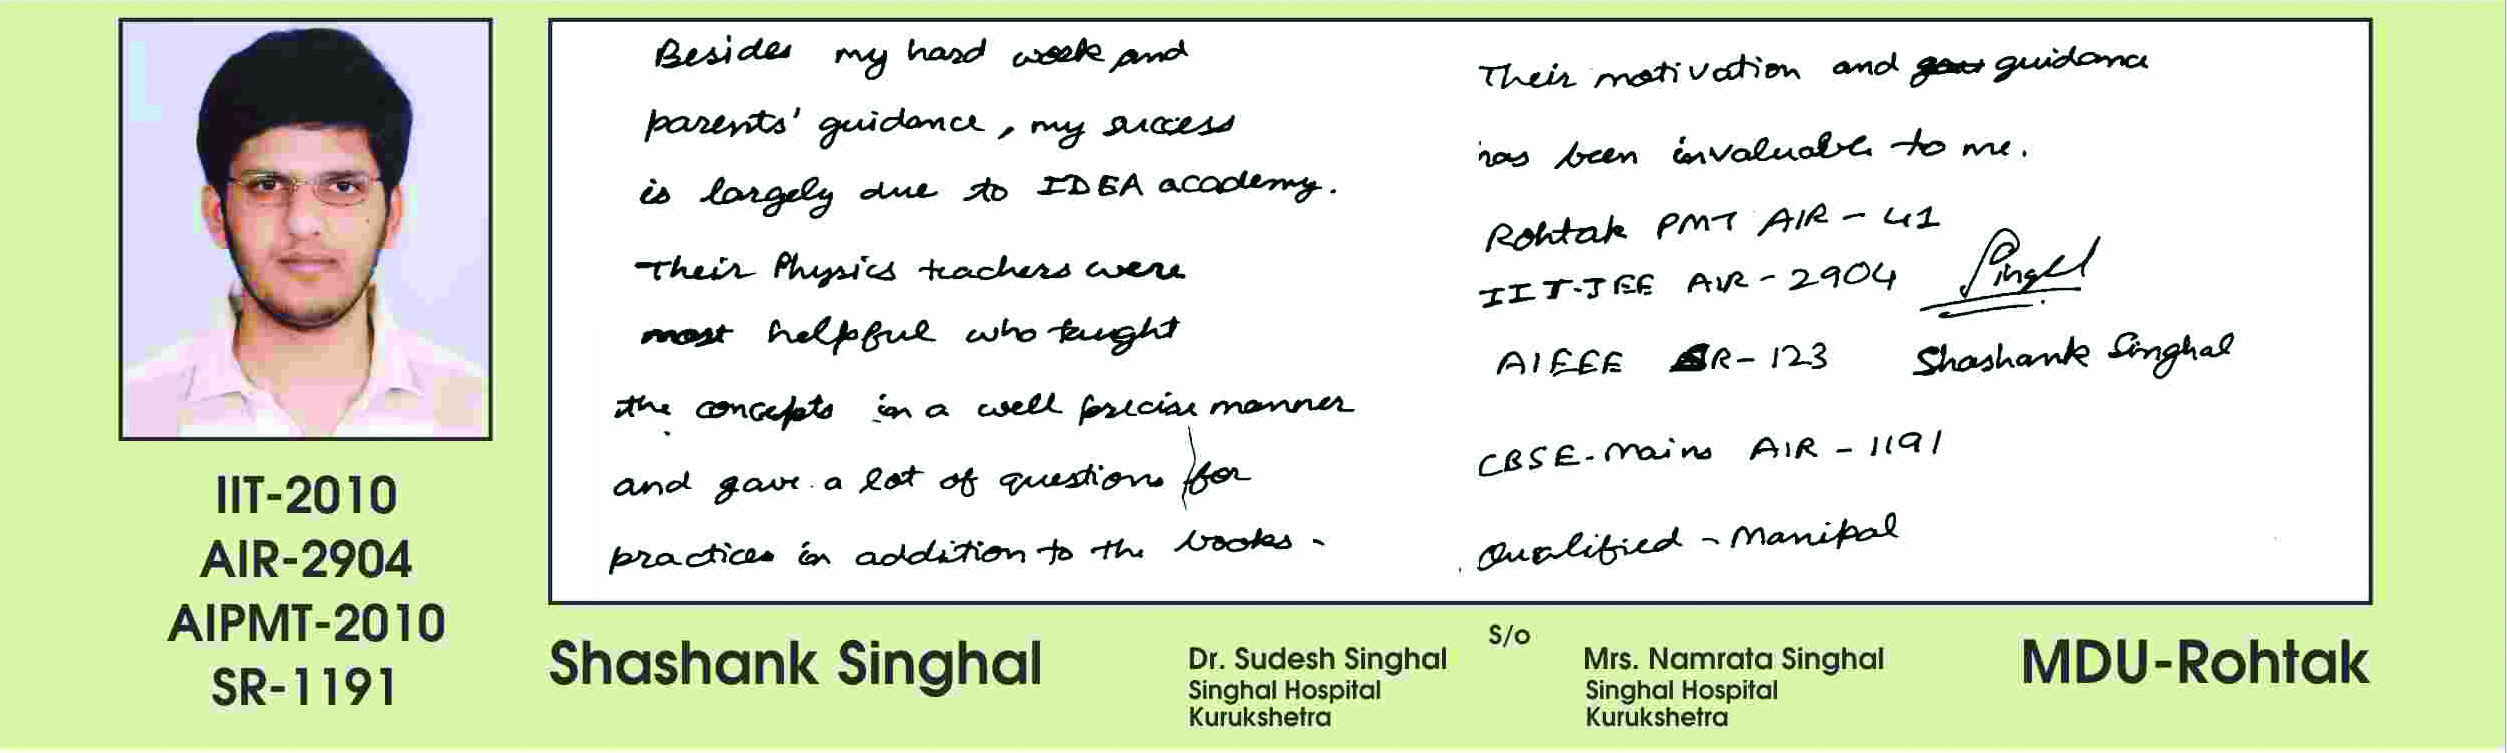 Besides my hard work and
parents' guidance, my success
is largely due to IDEA academy.
Their Physics teachers were
most helpful who taught
the concepts in a well precise manner
and gave a lot of questions for
practices in addition to the books.
Their motivation and guidance
has been invaluable to me.
Rohtak PMT AIR - 41
IIT-JEE AIR - 2904
Singhl
AIEEE SR - 123
Shashank Singhal
CBSE-Mains AIR - 1191
Qualified - Manipal
IIT-2010
AIR-2904
AIPMT-2010
SR-1191
Shashank Singhal
S/o
Dr. Sudesh Singhal
Singhal Hospital
Kurukshetra
Mrs. Namrata Singhal
Singhal Hospital
Kurukshetra
MDU-Rohtak